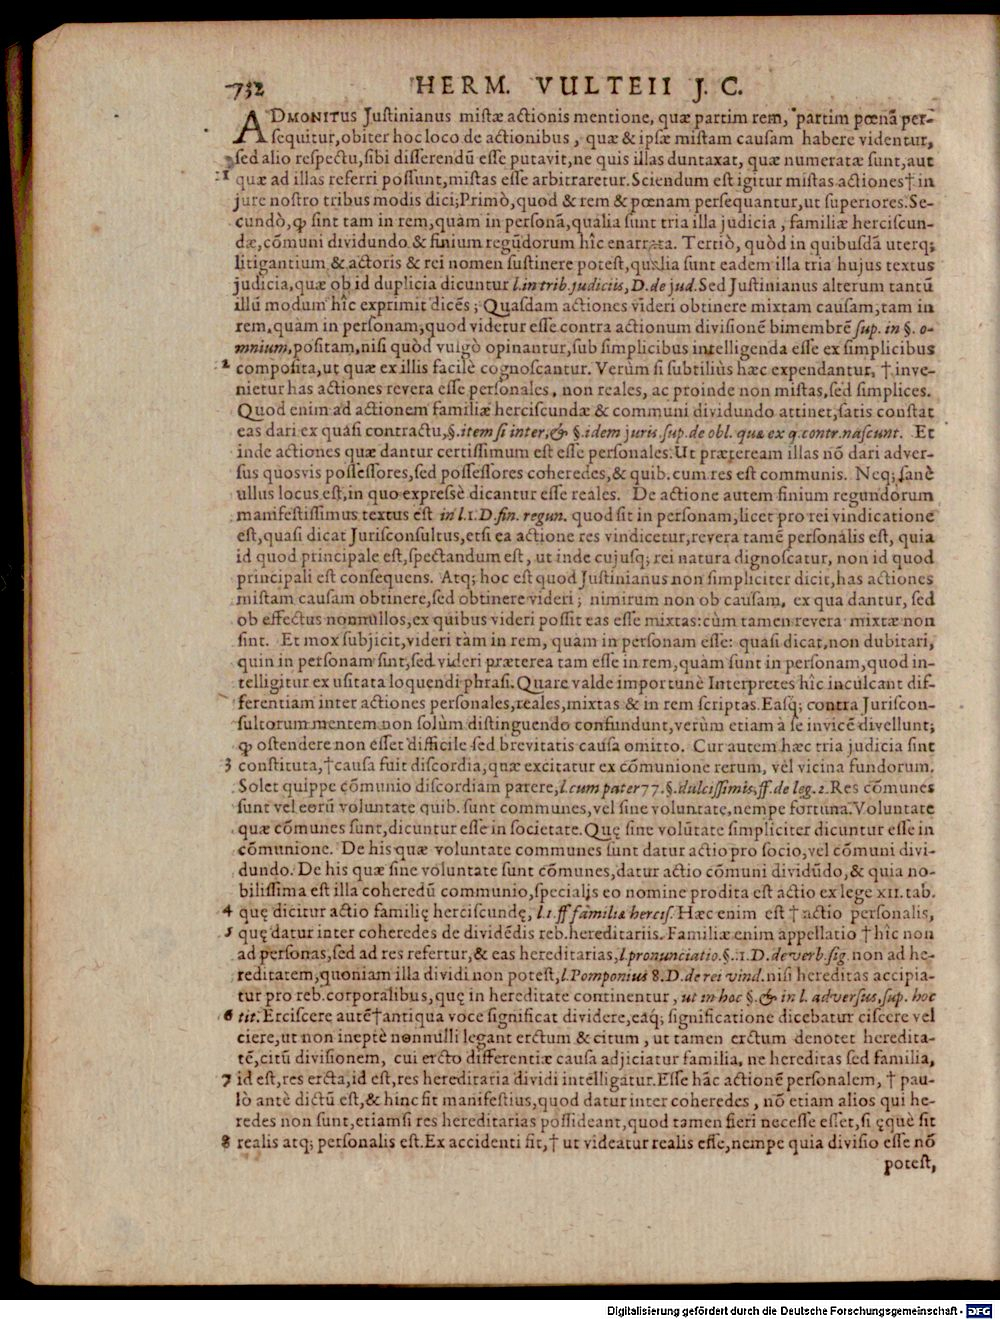 732 HERM. VULTEII J. C.
ADMONITUS Justinianus mistæ actionis mentione, quæ partim rem, partim pœnã per-
sequitur, obiter hoc loco de actionibus, quæ & ipsæ mistam causam habere videntur,
sed alio respectu, sibi differendũ esse putavit, ne quis illas duntaxat, quæ numeratæ sunt, aut
1 quæ ad illas referri possunt, mistas esse arbitraretur. Sciendum est igitur mistas actiones † in
jure nostro tribus modis dici; Primò, quod & rem & pœnam persequantur, ut superiores. Se-
cundò, ꝙ sint tam in rem, quàm in personã, qualia sunt tria illa judicia, familiæ herciscun-
dæ, cõmuni dividundo & finium regũdorum hîc enarrata. Tertiò, quòd in quibusdã uterq;
litigantium & actoris & rei nomen sustinere potest, qualia sunt eadem illa tria hujus textus
judicia, quæ ob id duplicia dicuntur l. in trib. judiciis, D. de jud. Sed Justinianus alterum tantũ
illũ modum hîc exprimit dicẽs; Quasdam actiones videri obtinere mixtam causam, tam in
rem, quàm in personam, quod videtur esse contra actionum divisionẽ bimembrẽ sup. in §. o-
mnium, positam, nisi quòd vulgò opinantur, sub simplicibus intelligenda esse ex simplicibus
2 composita, ut quæ ex illis facilè cognoscantur. Verùm si subtiliùs hæc expendantur, † inve-
nietur has actiones revera esse personales, non reales, ac proinde non mistas, sed simplices.
Quod enim ad actionem familiæ herciscundæ & communi dividundo attinet, satis constat
eas dari ex quasi contractu, §. item si inter, & §. idem juris. sup. de obl. quæ ex q. contr. nascunt. Et
inde actiones quæ dantur certissimum est esse personales: Ut præteream illas nõ dari adver-
sus quosvis possessores, sed possessores coheredes, & quib. cum res est communis. Neq; sanè
ullus locus est, in quo expressè dicantur esse reales. De actione autem finium regundorum
manifestissimus textus est in l. 1. D. fin. regun. quod sit in personam, licet pro rei vindicatione
est, quasi dicat Jurisconsultus, etsi ea actione res vindicetur, revera tamẽ personalis est, quia
id quod principale est, spectandum est, ut inde cujusq; rei natura dignoscatur, non id quod
principali est consequens. Atq; hoc est quod Justinianus non simpliciter dicit, has actiones
mistam causam obtinere, sed obtinere videri; nimirum non ob causam, ex qua dantur, sed
ob effectus nonnullos, ex quibus videri possit eas esse mixtas: cùm tamen revera mixtæ non
sint. Et mox subjicit, videri tàm in rem, quàm in personam esse: quasi dicat, non dubitari,
quin in personam sint, sed videri præterea tam esse in rem, quàm sunt in personam, quod in-
telligitur ex usitata loquendi phrasi. Quare valde importunè Interpretes hîc inculcant dif-
ferentiam inter actiones personales, reales, mixtas & in rem scriptas. Easq; contra Juriscon-
sultorum mentem non solùm distinguendo confundunt, verùm etiam à se invicẽ divellunt;
ꝙ ostendere non esset difficile sed brevitatis causa omitto. Cur autem hæc tria judicia sint
3 constituta, † causa fuit discordia, quæ excitatur ex cõmunione rerum, vel vicina fundorum.
Solet quippe cõmunio discordiam parere, l. cum pater 77. §. dulcissimis, ff. de leg. 2. Res cõmunes
sunt vel eorũ voluntate quib. sunt communes, vel sine voluntate, nempe fortuna. Voluntate
quæ cõmunes sunt, dicuntur esse in societate. Quę sine volũtate simpliciter dicuntur esse in
cõmunione. De his quæ voluntate communes sunt datur actio pro socio, vel cõmuni divi-
dundo. De his quæ sine voluntate sunt cõmunes, datur actio cõmuni dividũdo, & quia no-
bilissima est illa coheredũ communio, specialis eo nomine prodita est actio ex lege XII. tab.
4 quę dicitur actio familię herciscundę, l. 1. ff familiæ hercis. Hæc enim est † actio personalis,
5 quę datur inter coheredes de dividẽdis reb. hereditariis. Familiæ enim appellatio † hîc non
ad personas, sed ad res refertur, & eas hereditarias, l. pronunciatio. §. 1. D. de verb. sig. non ad he-
reditatem, quoniam illa dividi non potest, l. Pomponius 8. D. de rei vind. nisi hereditas accipia-
tur pro reb. corporalibus, quę in hereditate continentur, ut in hoc §. & in l. adversus, sup. hoc
6 tit. Erciscere autẽ † antiqua voce significat dividere, eaq; significatione dicebatur ciscere vel
ciere, ut non ineptè nonnulli legant erctum & citum, ut tamen erctum denotet heredita-
tẽ, citũ divisionem, cui ercto differentiæ causa adjiciatur familia, ne hereditas sed familia,
7 id est, res ercta, id est, res hereditaria dividi intelligatur. Esse hãc actionẽ personalem, † pau-
lò antè dictũ est, & hinc fit manifestius, quod datur inter coheredes, nõ etiam alios qui he-
redes non sunt, etiamsi res hereditarias possideant, quod tamen fieri necesse esset, si ęquè sit
8 realis atq; personalis est. Ex accidenti fit, † ut videatur realis esse, nempe quia divisio esse nõ
potest,
Digitalisierung gefördert durch die Deutsche Forschungsgemeinschaft - DFG